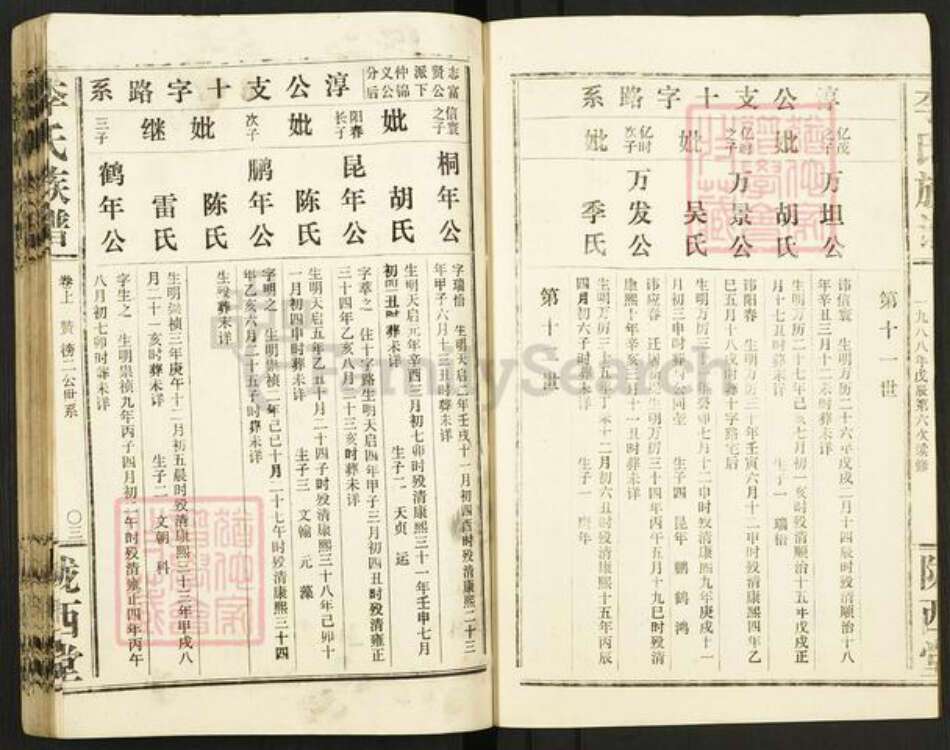 李氏族谱
一九八八年戊辰第六次续修
陇西堂
淳公支十字路系
第十一世
亿茂之子
万坦公
讳信寰 生明万历二十六年戊戌二月十四辰时殁清顺治十八
年辛丑三月十二未时葬未详
妣 胡氏
生明万历二十七年己亥七月初一亥时殁清顺治十五年戊戌正
月十七丑时葬未详 生子一 瑞怡
亿时之子
万景公
讳阳春 生明万历三十年壬寅六月十二申时殁清康熙四年乙
巳五月十八戌时葬十字路宅后
妣 吴氏
生明万历三十一年癸卯七月十二申时殁清康熙九年庚戌十一
月初三申时葬与公同茔 生子四 昆年 鹏 鹤 鸿
亿时次子
万发公
讳应春 迁居 生明万历三十四年丙午五月十九巳时殁清
康熙十年辛亥 月十一丑时葬未详
妣 季氏
生明万历三十五年丁未十二月初六丑时殁清康熙十五年丙辰
四月初六子时葬未详 生子一 庚年
第十二世
志贤派仲义分
富公下锦公后
淳公支十字路系
信寰之子
桐年公
字瑞怡 生明天启二年壬戌十一月初四酉时殁清康熙二十三
年甲子六月十三丑时葬未详
妣 胡氏
生明天启元年辛酉三月初七卯时殁清康熙三十一年壬申七月
初四丑时葬未详 生子二 天贞 运
阳春长子
昆年公
字章之 住十字路生明天启四年甲子三月初四丑时殁清雍正
三十四年乙亥八月二十三亥时葬未详
妣 陈氏
生明天启五年乙丑十月二十四子时殁清康熙三十八年己卯十
一月初四申时葬未详 生子三 文翰 元 藻
次子
鹏年公
字明之 生明崇祯二年己巳十月二十七午时殁清康熙三十四
年乙亥六月二十五子时葬未详
妣 陈氏
生殁葬未详
继 雷氏
生明崇祯三年庚午十二月初五辰时殁清康熙三十三年甲戌八
月二十一亥时葬未详 生子二 文朝 科
三子
鹤年公
字生之 生明崇祯九年丙子四月初二午时殁清雍正四年丙午
八月初七卯时葬未详
李氏族谱
卷上 赞榜二公世系
〇三
陇西堂
FamilySearch